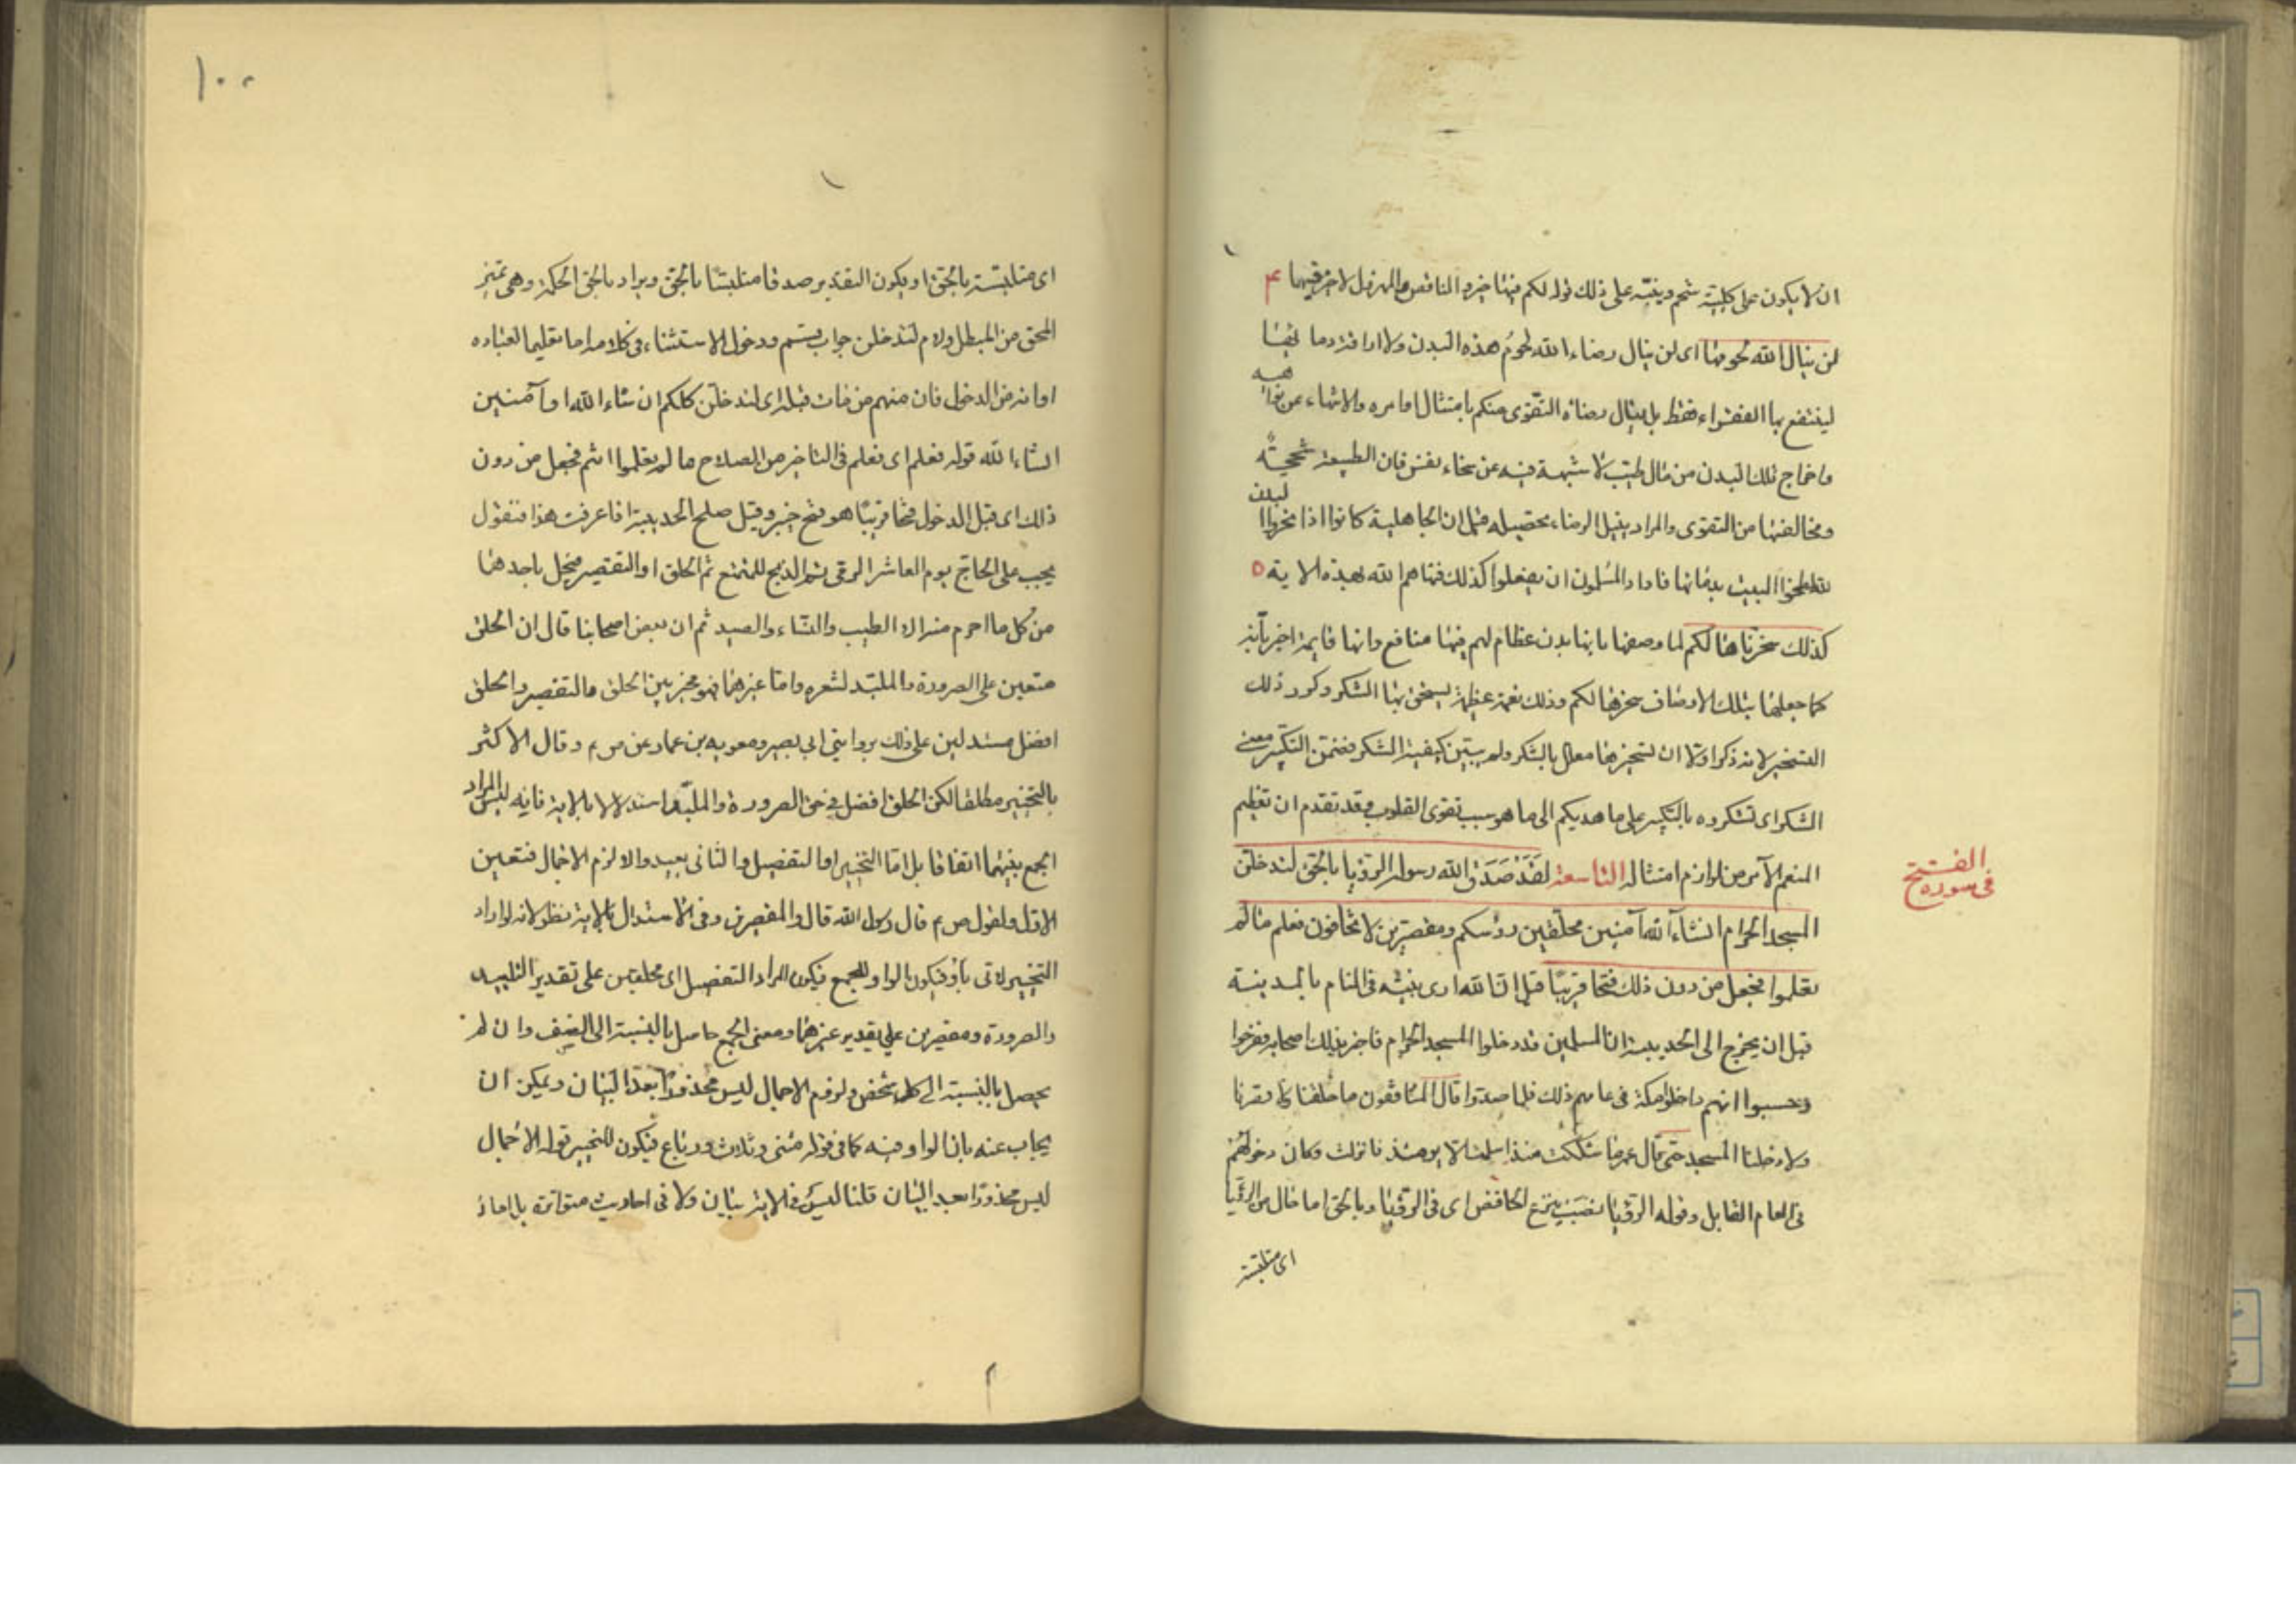 ان لا يكون على كليته شحم وينبّه على ذلك قوله لكم فيها خير والناقص والمهزول لا خير فيهما ۴
لن ينال الله لحومها اى لن ينال رضاء الله لحوم هذه البدن ولا اراقة دمائها
لينتفع بها الفقراء فقط بل ينال رضاه التقوى منكم بامتثال اوامره والانتهاء عن نواهيه
واخراج تلك البدن من مال طيب لا شبهة فيه عن سخاء نفس فان الطبيعة شحيحة
ومخالفتها من التقوى والمراد بنيل الرضاء تحصيله قيل ان الجاهلية كانوا اذا نحروا البدن
لطخوا البيت بدمائها فاراد المسلمون ان يفعلوا كذلك فنهاهم الله بهذه الاية ٥
كذلك سخرناها لكم لما وصفها بانها بدن عظام لهم فيها منافع وانها قايمة اخبر بأنه
كما جعلها بتلك الاوصاف سخرها لكم وذلك نعمة عظيمة يستحق بها الشكر وكرر ذلك
التسخير لانه ذكر اولا ان تسخيرها معلل بالشكر ولم يبين كيفية الشكر فضمن التكبير معنى
الشكر اى تشكروه بالتكبير على ما هديكم الى ما هو سبب تقوى القلوب وقد تقدم ان تعظيم
المنعم الآمر من لوازم امتثاله التاسعة لقد صدق الله رسوله الرؤيا بالحق لتدخلن
فى سورة الفتح
المسجد الحرام انشاء الله آمنين محلقين رؤسكم ومقصرين لا تخافون فعلم ما لم
تعلموا فجعل من دون ذلك فتحا قريبا قيل ان الله ارى نبيه فى المنام بالمدينة
قبل ان يخرج الى الحديبية ان المسلمين قد دخلوا المسجد الحرام فاخبر بذلك اصحابه ففرحوا
وحسبوا انهم داخلوا مكة فى عامهم ذلك فلما صدوا قال المنافقون ما حلقنا ولا قصرنا
ولا دخلنا المسجد حتى قال عمر ما شككت منذ اسلمت الا يومئذ فانزلت وكان دخولهم
فى العام القابل وقوله الرؤيا نصب بنزع الخافض اى فى الرؤيا وبالحق اما حال من الرؤيا
اى متلبسة
١٠٠
اى متلبسة بالحق او يكون التقدير صدقا متلبسا بالحق ويراد بالحق الحكمة وهى تميز
المحق من المبطل ولام لتدخلن جواب قسم ودخول الاستثناء فى كلامه اما تعليما لعباده
او انه من الدخول فان منهم من مات قبله اى لتدخلن كلكم ان شاء الله او آمنين
انشاء الله قوله فعلم اى فعلم فى التاخير من الصلاح ما لم تعلموا انتم فجعل من دون
ذلك اى قبل الدخول فتحا قريبا هو فتح خيبر وقيل صلح الحديبية اذا عرفت هذا فنقول
يجب على الحاج يوم العاشر الرمى ثم الذبح للمتمتع ثم الحلق او التقصير فيحل باحدهما
من كل ما احرم منه الا الطيب والنساء والصيد ثم ان بعض اصحابنا قال ان الحلق
متعين على الصرورة والملبد لشعره واما غيرهما فهو مخير بين الحلق والتقصير والحلق
افضل مستدلين على ذلك بروايتى ابى بصير ومعوية بن عمار عن ص م وقال الاكثر
بالتخيير مطلقا لكن الحلق افضل فى حق الصرورة والملبد استدلالا بالاية فانه ليس المراد
الجمع بينهما اتفاقا بل اما التخيير او التفصيل والثانى بعيد والا لزم الاجمال فتعين
الاول ولقول ص م قال رسول الله قال والمقصرين وفى الاستدلال بالاية نظر لانه لو اراد
التخيير لاتى باو فيكون الواو للجمع فيكون المراد التفصيل اى محلقين على تقدير التلبيد
والصرورة ومقصرين على تقدير غيرهما ومعنى الجمع حاصل بالنسبة الى الصنف وان لم
يحصل بالنسبة الى كل شخص ولزوم الاجمال ليس محذورا بعد البيان ويمكن ان
يجاب عنه بان الواو فيه كما فى قوله مثنى وثلاث ورباع فيكون للتخيير قوله الاجمال
ليس محذورا بعد البيان قلنا ليس فى الاية بيان ولا فى احاديث متواترة بل احاد